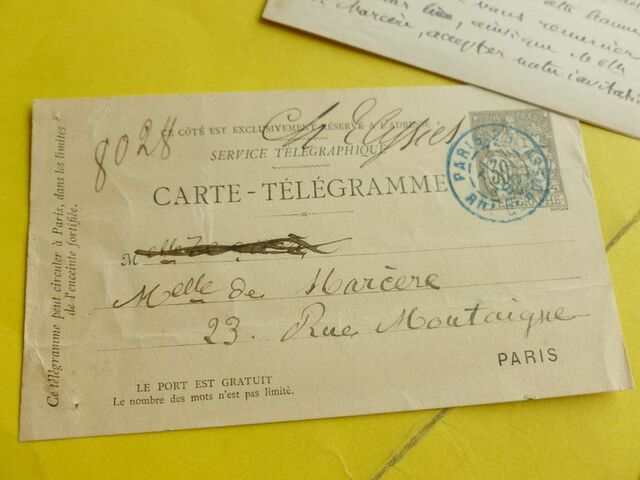 vous remercier
bien, ainsique Melle
de Marcère, accepter notre invitation
8028
Ch Elysies
CE CÔTÉ EST EXCLUSIVEMENT RÉSERVÉ A L'ADRESSE
SERVICE TÉLÉGRAPHIQUE
CARTE-TÉLÉGRAMME
PARIS
30
M
Melle de Marcère
23. Rue Montaigne
PARIS
LE PORT EST GRATUIT
Le nombre des mots n'est pas limité.
Ce télégramme peut circuler à Paris, dans les limites
de l'enceinte fortifiée.